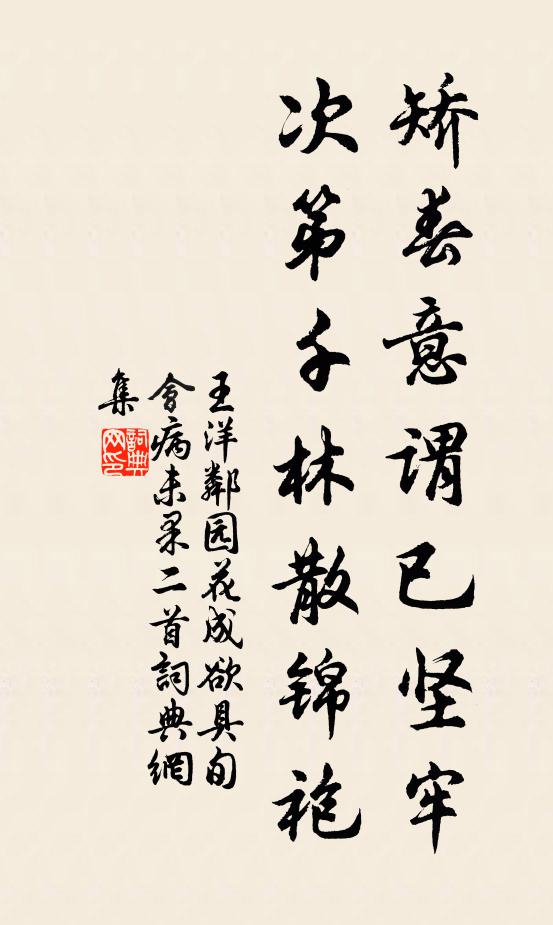 矫春意谓已坚牢
次第千林散锦袍
王洋鄰园花成欲具旬
會病未果二首詞典網
集
詞典网印